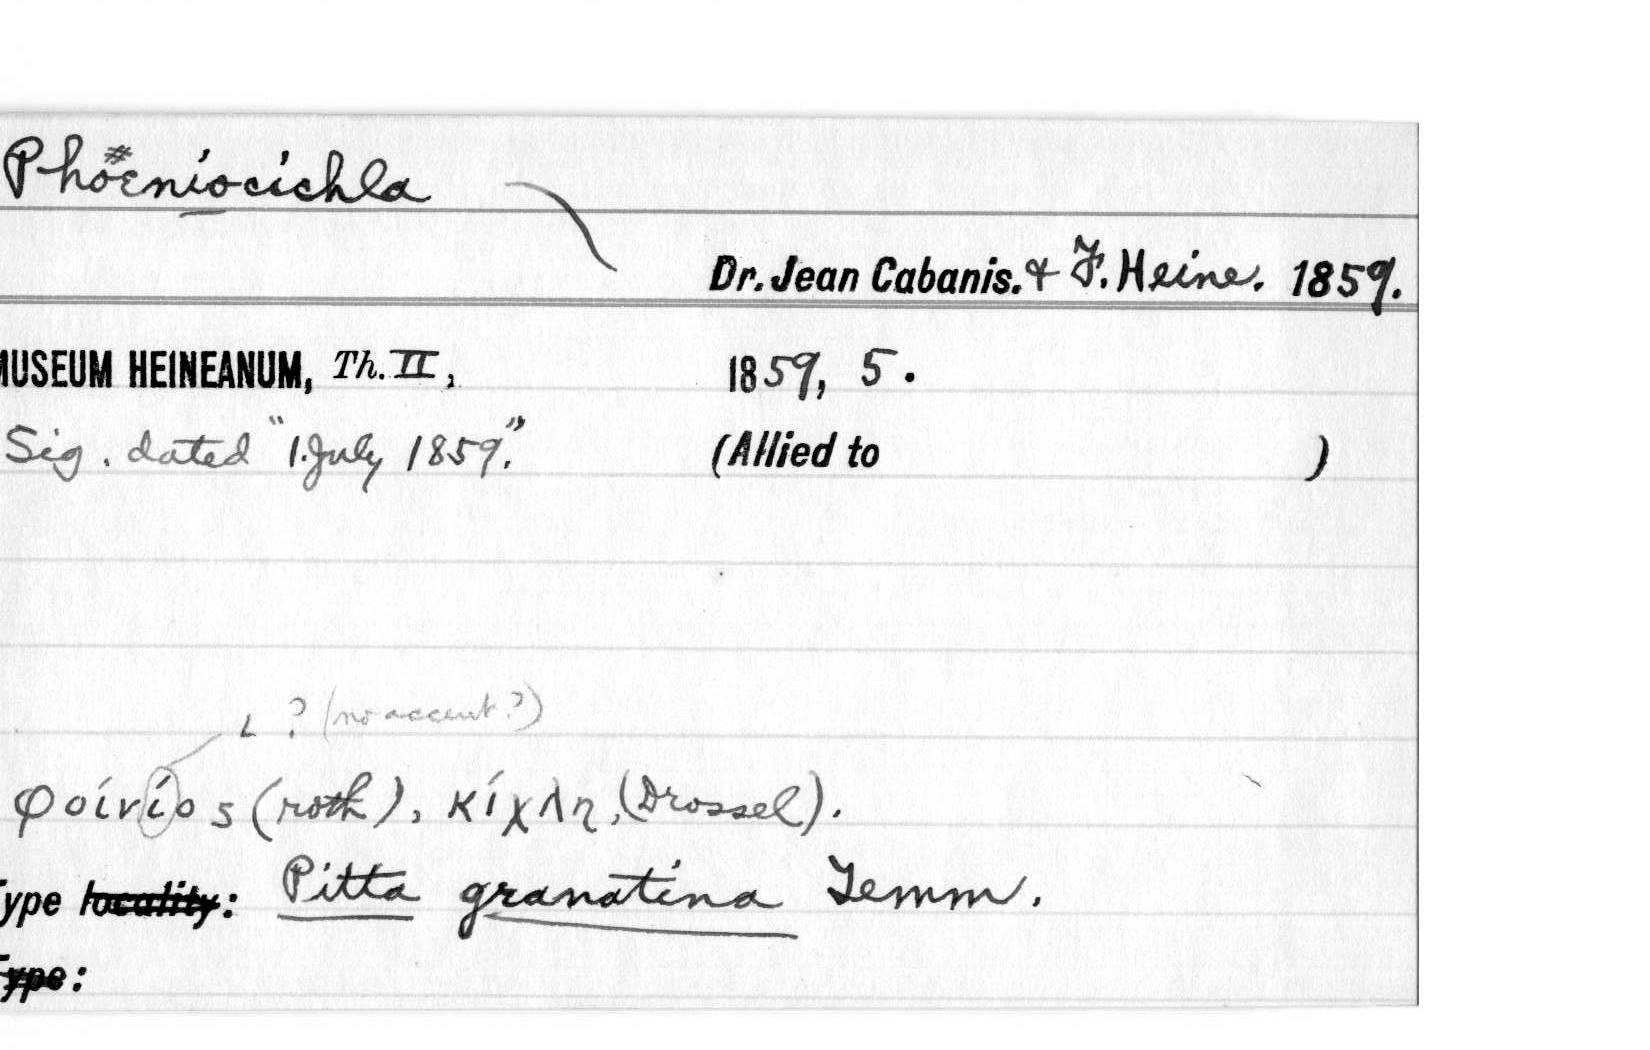 Phoeniocichla
Dr. Jean Cabanis. & F. Heine. 1859.
MUSEUM HEINEANUM, Th. II, 1859, 5.
Sig. dated "1. July 1859". (Allied to )
ι ? (no accent?)
φοίνίος (roth), κίχλη, (Drossel).
Type locality: Pitta granatina Temm.
Type: